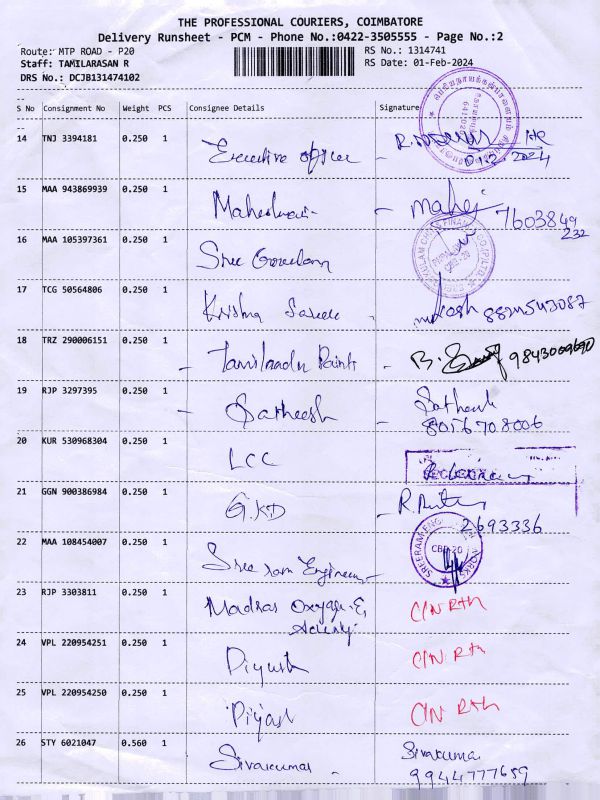 THE PROFESSIONAL COURIERS, COIMBATORE
Delivery Runsheet - PCM - Phone No.:0422-3505555 - Page No.:2
Route: MTP ROAD - P20 RS No.: 1314741
Staff: TAMILARASAN R RS Date: 01-Feb-2024
DRS No.: DCJB131474102
S No Consignment No Weight PCS Consignee Details Signature
14 TNJ 3394181 0.250 1 Executive officer
15 MAA 943869939 0.250 1 Maheshwari - mahej
7603849
232
16 MAA 105397361 0.250 1 Sree
17 TCG 50564806 0.250 1 Krishna
18 TRZ 290006151 0.250 1 - Tamilnadu Paints - B. 9843009690
19 RJP 3297395 0.250 1 - Satheesh Sathesh
8056708006
20 KUR 530968304 0.250 1 LCC
21 GGN 900386984 0.250 1 G.KD - R.
2693336
22 MAA 108454007 0.250 1 Sree ram Engineers - CBE-20
23 RJP 3303811 0.250 1 Madras Oxygen & C/N Rth
24 VPL 220954251 0.250 1 Piyush C/N Rth
25 VPL 220954250 0.250 1 Piyash C/N Rth
26 STY 6021047 0.560 1 Sivakumar - Sivakumar
9944777659